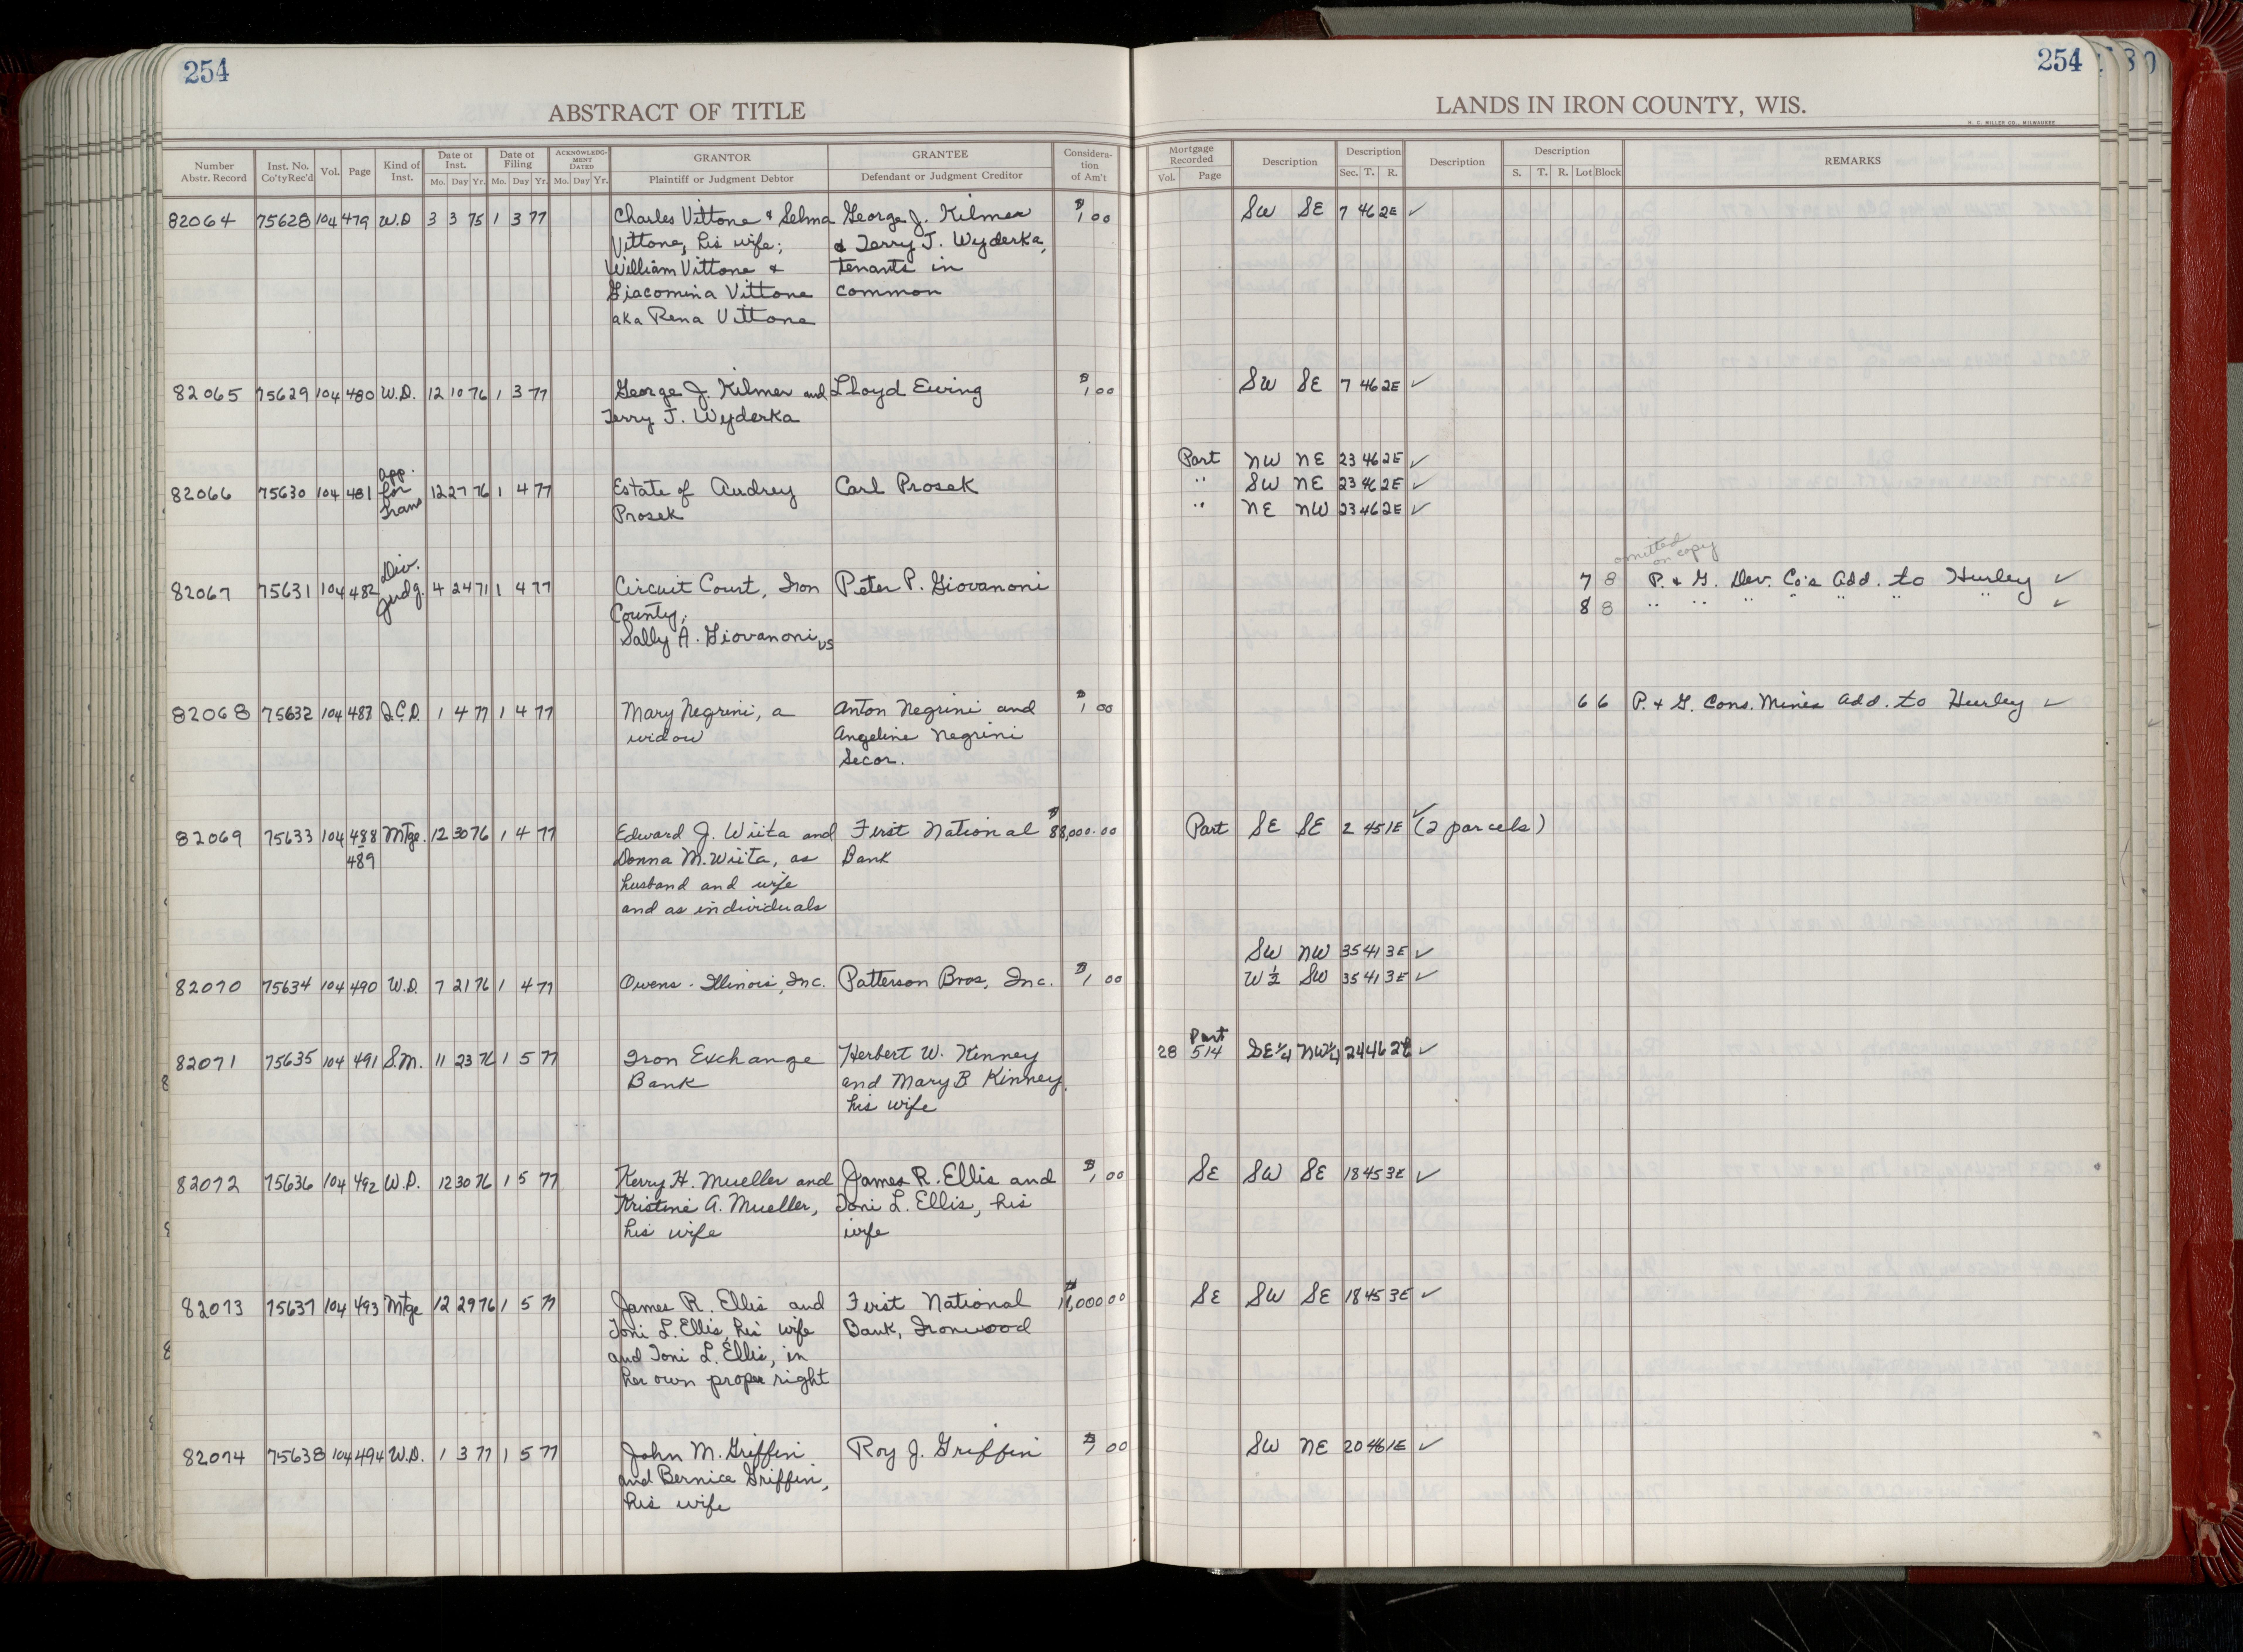 254
ABSTRACT OF TITLE
Number Abstr. Record | Inst. No. Co'ty Rec'd | Vol. | Page | Kind of Inst. | Date of Inst. Mo. Day Yr. | Date of Filing Mo. Day Yr. | ACKNOWLEDGMENT DATED Mo. Day Yr. | GRANTOR Plaintiff or Judgment Debtor | GRANTEE Defendant or Judgment Creditor | Consideration of Am't
82064 75628 104 479 W.D 3 3 75 1 3 77 Charles Vittone & Selma George J. Kilmer $1 00
Vittone, his wife; & Terry J. Wyderka,
William Vittone & tenants in
Giacomina Vittone common
aka Rena Vittone
82065 75629 104 480 W.D. 12 10 76 1 3 77 George J. Kilmer and Lloyd Ewing $1 00
Terry J. Wyderka
82066 75630 104 481 App. for Trans 12 27 76 1 4 77 Estate of Audrey Carl Prosek
Prosek
82067 75631 104 482 Div. Judg. 4 24 71 1 4 77 Circuit Court, Iron Peter P. Giovanoni
County;
Sally A. Giovanoni vs
82068 75632 104 487 Q.C.D. 1 4 77 1 4 77 Mary Negrini, a Anton Negrini and $1 00
widow Angeline Negrini
Secor.
82069 75633 104 488 Mtge. 12 30 76 1 4 77 Edward J. Wiita and First National $88,000.00
- 489 Donna M. Wiita, as Bank
husband and wife
and as individuals
82070 75634 104 490 W.D. 7 21 76 1 4 77 Owens-Illinois, Inc. Patterson Bros, Inc. $1 00
82071 75635 104 491 S.M. 11 23 76 1 5 77 Iron Exchange Herbert W. Kinney
Bank and Mary B Kinney,
his wife
82072 75636 104 492 W.D. 12 30 76 1 5 77 Kerry H. Mueller and James R. Ellis and $1 00
Kristine A. Mueller, Toni L. Ellis, his
his wife wife
82073 75637 104 493 Mtge 12 29 76 1 5 77 James R. Ellis and First National $11,000 00
Toni L. Ellis, his wife Bank, Ironwood
and Toni L. Ellis, in
her own proper right
82074 75638 104 494 W.D. 1 3 77 1 5 77 John M. Griffin Roy J. Griffin $1 00
and Bernice Griffin,
his wife
254
LANDS IN IRON COUNTY, WIS.
H. C. MILLER CO., MILWAUKEE
Mortgage Recorded Vol. Page | Description | Description Sec. T. R. | Description | Description S. T. R. Lot Block | REMARKS
SW SE 7 46 2E ✓
SW SE 7 46 2E ✓
Part NW NE 23 46 2E ✓
" SW NE 23 46 2E ✓
" NE NW 23 46 2E ✓
omitted
on copy
7 8 P. & G. Dev. Co's Add. to Hurley ✓
8 8 " " " " " " " ✓
6 6 P. & G. Cons. Mines Add. to Hurley ✓
Part SE SE 2 45 1E ✓ (2 parcels)
SW NW 35 41 3E ✓
W½ SW 35 41 3E ✓
Part
28 514 SE¼ NW¼ 24 46 2E ✓
SE SW SE 18 45 3E ✓
SE SW SE 18 45 3E ✓
SW NE 20 46 1E ✓